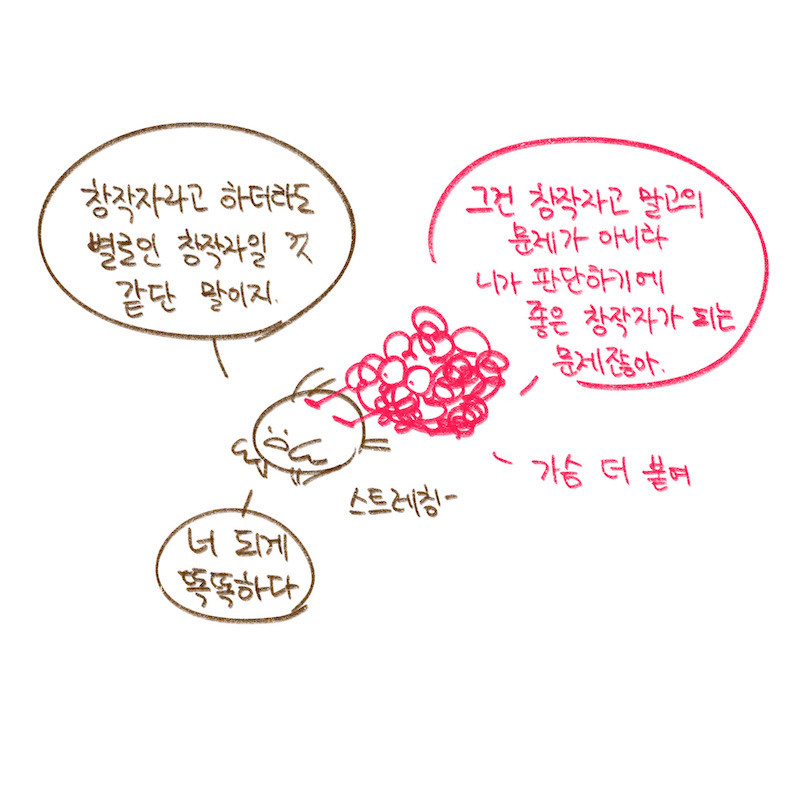 창작자라고 하더라도
별로인 창작자일 것
같단 말이지.
그건 창작자고 말고의
문제가 아니라
니가 판단하기에
좋은 창작자가 되는
문제잖아.
가슴 더 붙여
스트레칭-
너 되게
똑똑하다